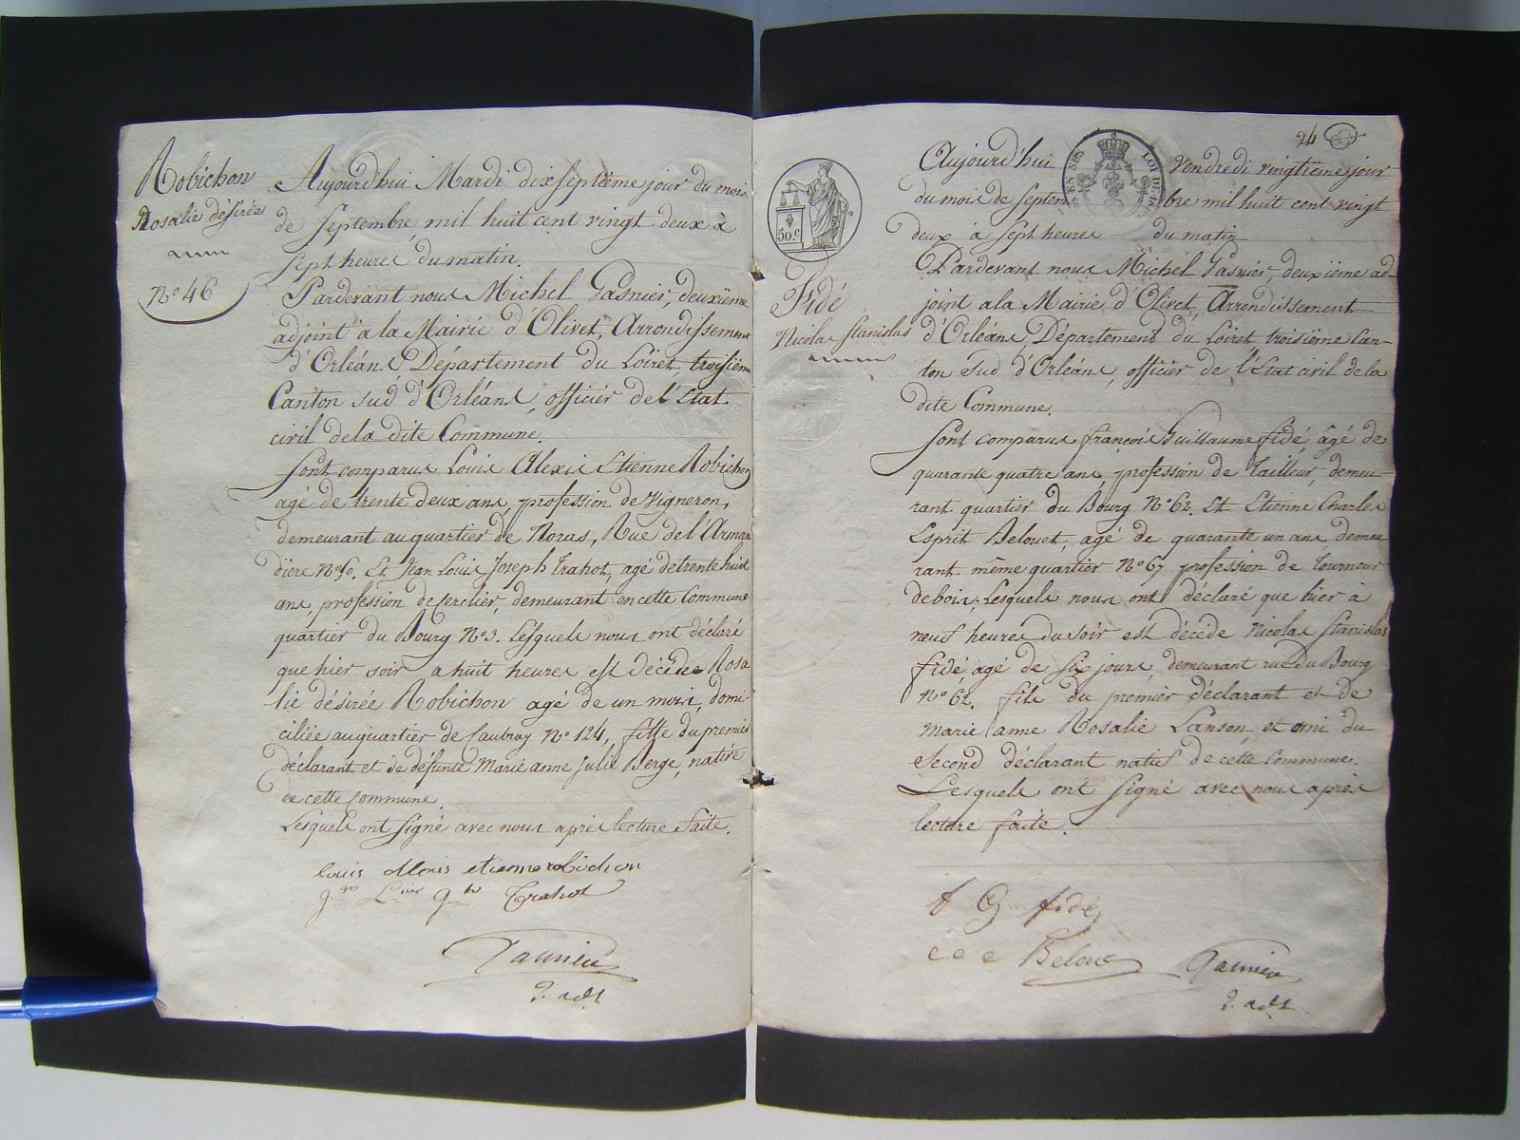 Robichon
Rosalie désirée
N° 46
Aujourd'hui Mardi dix septième jour du mois
de Septembre mil huit cent vingt deux à
Sept heures du matin.
Pardevant nous Michel Gasnier, deuxième
adjoint à la Mairie d'Olivet, Arrondissement
d'Orléans, Département du Loiret, troisième
Canton sud d'Orléans, officier de l'Etat
civil dela dite Commune.
Sont comparus Louis Alexis Etienne Robichon
agé de trente deux ans, profession de vigneron,
demeurant au quartier de Noras, Rue de l'
diere N° Et Jean Louis Joseph Trahot, agé de trente huit
ans, profession de cerclier, demeurant en cette Commune
quartier du Bourg N° 3. Lesquels nous ont déclaré
que hier soir a huit heures est décédée Rosa
lie désirée Robichon agé de un mois, domi
ciliée au quartier de Caubray N° 124, fille du premier
déclarant et de défunte Marie anne Julie Berge, native
de cette Commune.
Lesquels ont signé avec nous après lecture faite.
louis etienne robichon
Trahot
Gasnier
2. adt
24
50 c
LOI DU
Aujourd'hui Vendredi vingtième jour
du mois de Septembre mil huit cent vingt
deux à sept heures du matin
Pardevant nous Michel Gasnier deuxième ad-
joint ala Mairie d'Olivet, Arrondissement
d'Orléans, Département du Loiret troisième Can-
ton sud d'Orléans, officier de l'Etat civil de la
dite Commune.
Fidé
Nicolas Stanislas
Sont comparus françois Guillaume fidé âgé de
quarante quatre ans, profession de Tailleur, demeu-
rant quartier du Bourg N° 62. Et Etienne Charles
Esprit Belouet, agé de quarante un ans demeu
rant même quartier N° 67 profession de tourneur
de bois, Lesquels nous ont déclaré que hier à
neuf heures du soir est décédé Nicolas Stanislas
fidé, agé de six jours, demeurant rue du Bourg
N° 62. fils du premier déclarant et de
marie anne Rosalie Lanson, et ami du
second déclarant natif de cette Commune.
Lesquels ont signé avec nous après
lecture faite.
f G fidé
c e e Beloue
Gasnier
2. adt